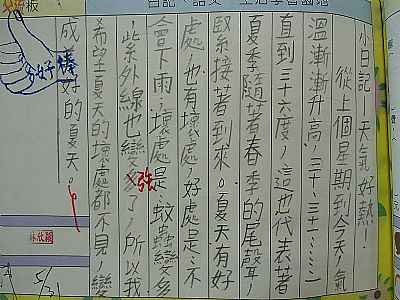 小日記—天氣好熱!
從上個星期到今天,氣
溫漸漸升高,三十、三十一……一
直到三十六度,這也代表著
夏季隨著春季的尾聲,
緊接著到來。夏天有好
處,也有壞處,好處是:不
會下雨,壞處是:蚊蟲變多
,紫外線也變強了,所以我
希望夏天的壞處都不見,變
成美好的夏天。
好棒
5/31